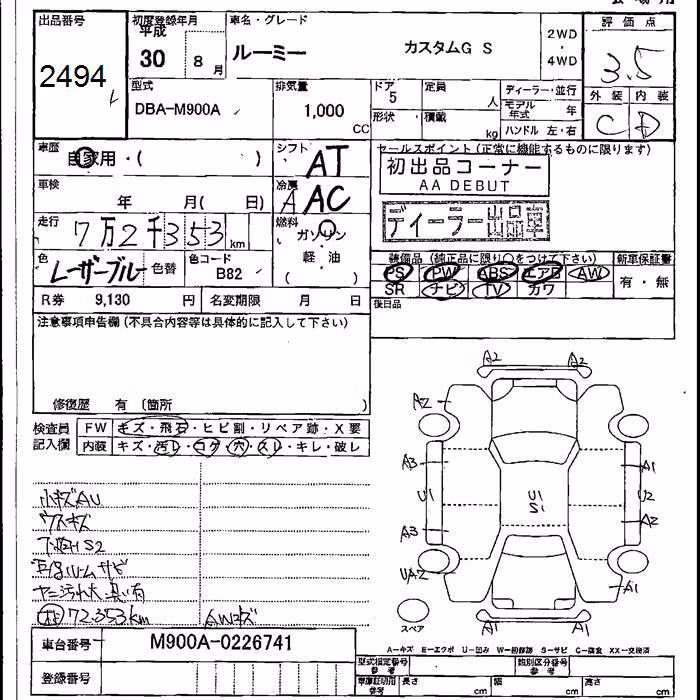 出品番号
2494
初度登録年月
平成
30 8月
車名・グレード
ルーミー カスタムG S
2WD
・
4WD
評価点
3.5
外装 内装
C D
型式
DBA-M900A
排気量
1,000
CC
ドア
5
定員
人
形状
積載
kg
ディーラー・並行
モデル年式 年
ハンドル 左・右
車歴
自家用・( )
シフト
AT
車検
年 月( 日)
冷房
A AC
走行
7万2千353 km
燃料
ガソリン
軽・油
( )
色
レーザーブルー 色替
色コード
B82
セールスポイント(正常に機能するものに限ります)
初出品コーナー
AA DEBUT
ディーラー出品車
装備品(純正品に限り○をつけて下さい)
PS PW ABS エアB AW
SR ナビ TV カワ
新車保証書
有・無
後日品
R券 9,130 円
名変期限 月 日
注意事項申告欄(不具合内容等は具体的に記入して下さい)
修復歴 有〔箇所 〕
検査員
記入欄
FW キズ・飛石・ヒビ割・リペア跡・X要
内装 キズ・汚レ・コゲ・穴・スレ・キレ・破レ
小キズAU
ウスキズ
下廻りS2
ヤニ汚れ大 臭い有
72,353km
AWキズ
A2 A2
A2
A3 A1
U1 U1 U2
S1
A3 A2
UA2 A1
A1 A1
スペア
A-キズ E-エクボ U-凹み W-補修跡 S-サビ C-腐食 XX-交換済
車台番号 M900A-0226741
登録番号
型式指定番号
参考
類別区分番号
参考
車庫証明用
参考
長さ cm
幅 cm
高さ cm